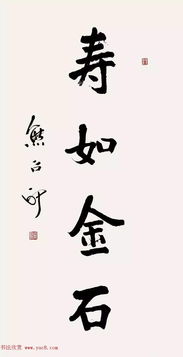 寿如金石
熊召政
书法欣赏 www.yac8.com